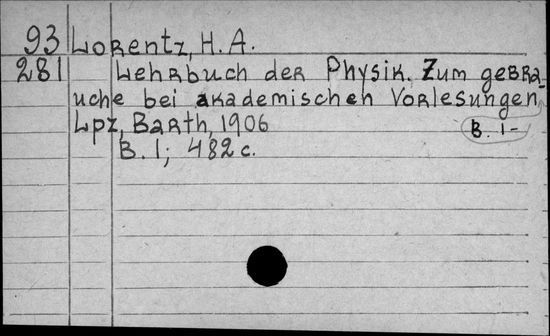 93 Lorentz, H. A.
281 Lehrbuch der Physik. Zum gebra-
uche bei akademischen Vorlesungen
Lpz, Barth, 1906
B. 1-
B. 1; 482 c.